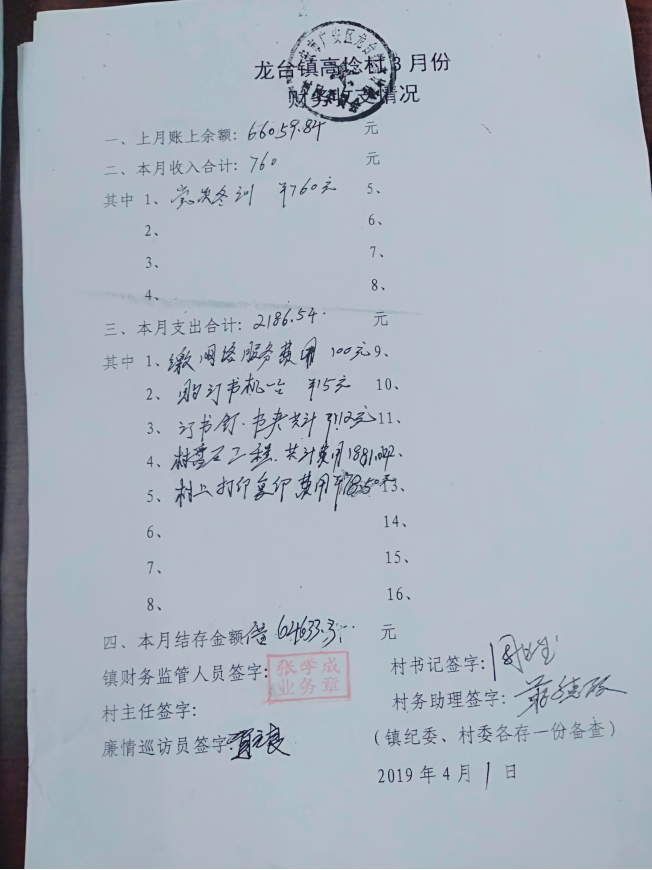 龙台镇高捻村3月份
财务收支情况
一、上月账上余额: 66059.84 元
二、本月收入合计: 760 元
其中 1、党员冬训 ¥760元 5、
2、 6、
3、 7、
4、 8、
三、本月支出合计: 2186.54 元
其中 1、缴网络服务费用 100元 9、
2、购订书机一台 ¥15元 10、
3、订书钉·书夹共计 ¥112元 11、
4、村 工程 共计费用1881.04
5、村上打印复印费用¥78.50元 13、
6、 14、
7、 15、
8、 16、
四、本月结存金额 64633.3 元
镇财务监管人员签字: 张学成 业务章
村书记签字:
村主任签字:
村务助理签字:
廉情巡访员签字:
(镇纪委、村委各存一份备查)
2019年4月1日